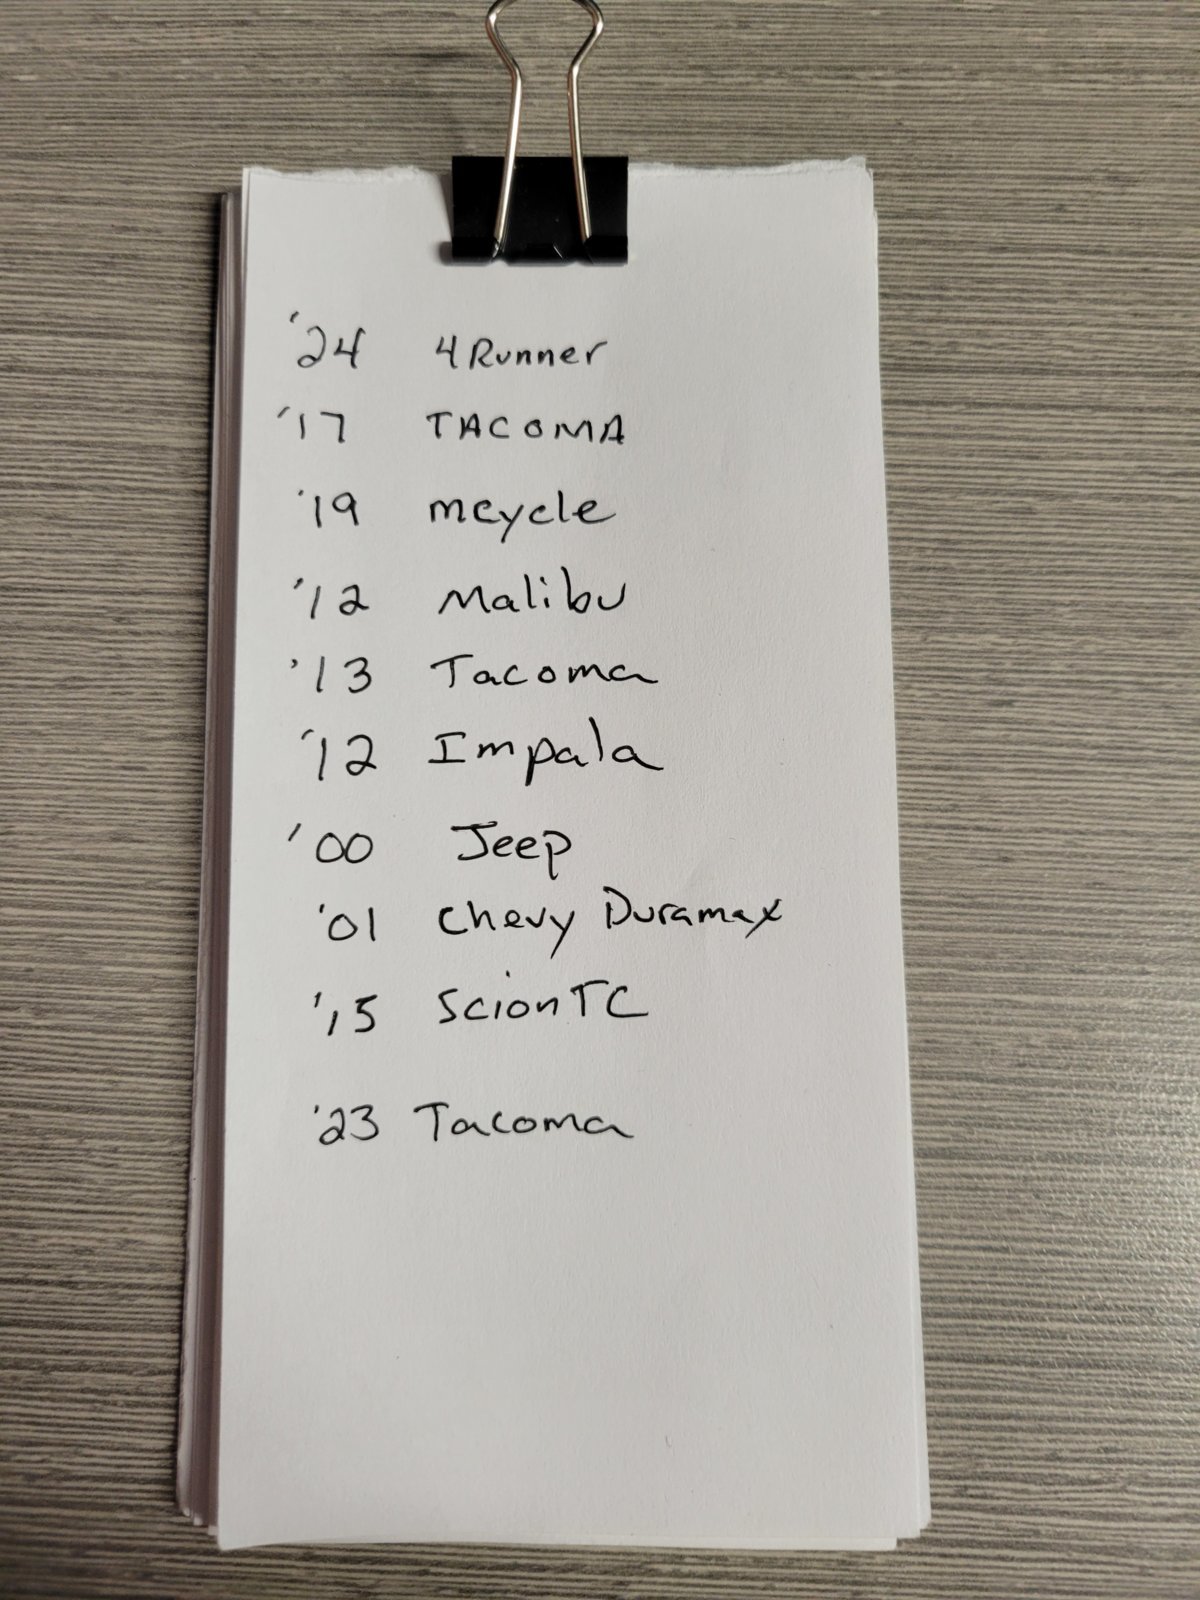 '24 4Runner
'17 TACOMA
'19 mcycle
'12 Malibu
'13 Tacoma
'12 Impala
'00 Jeep
'01 Chevy Duramax
'15 Scion TC
'23 Tacoma